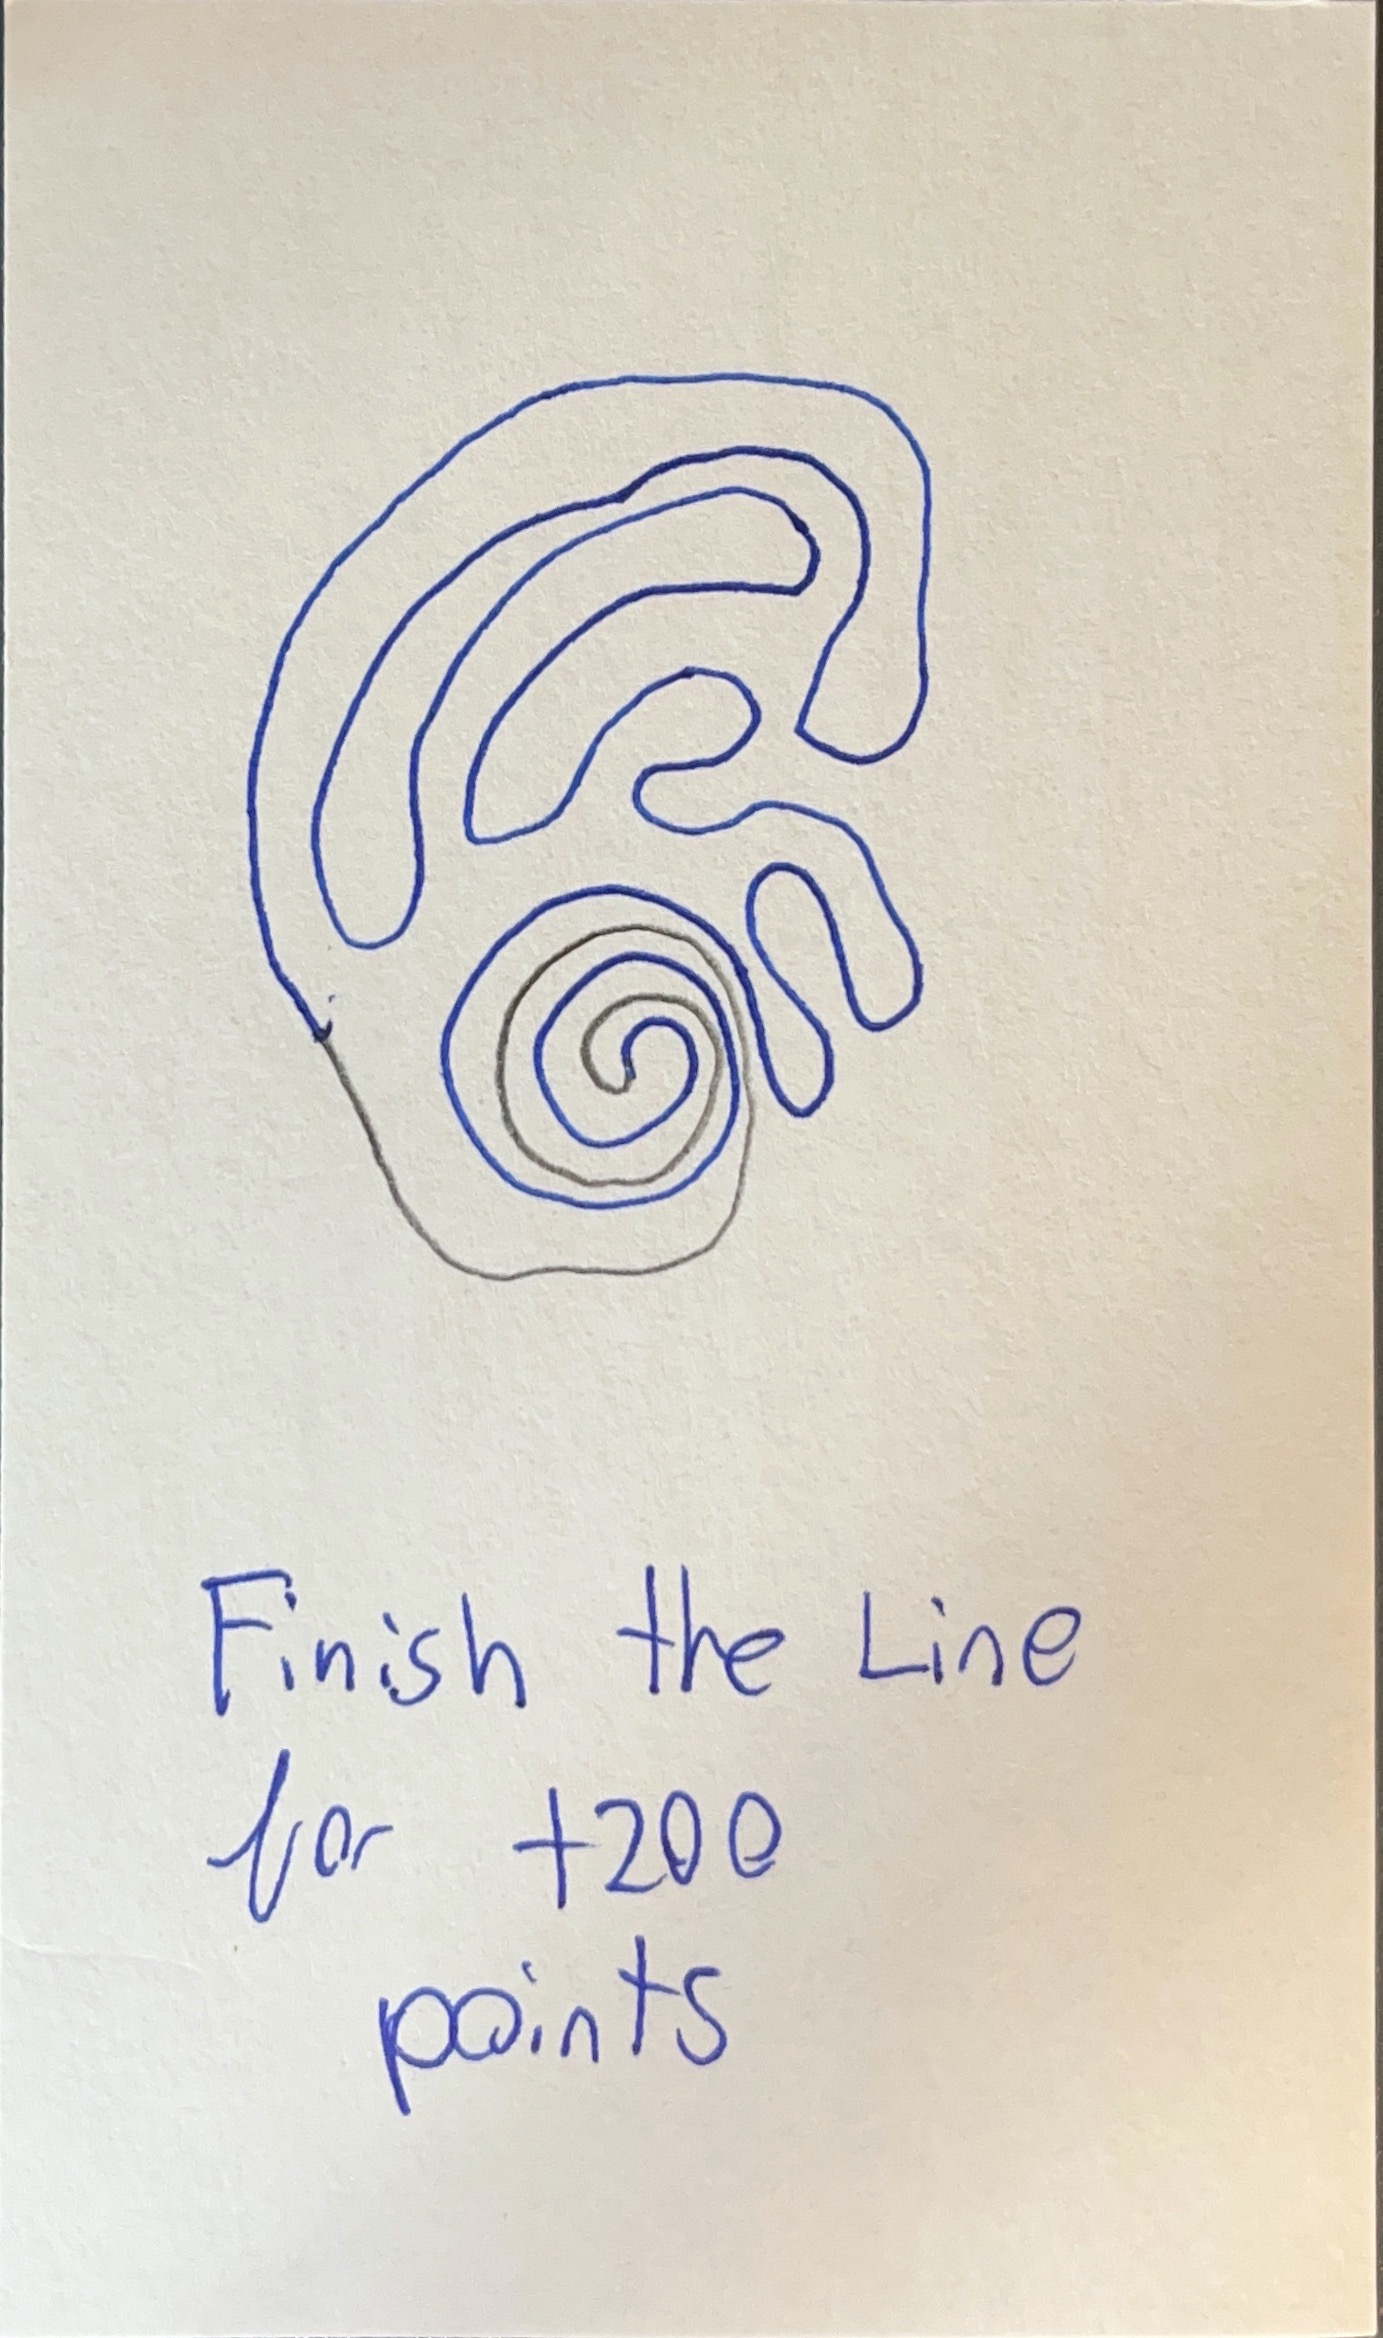 Finish the Line
for +200
points